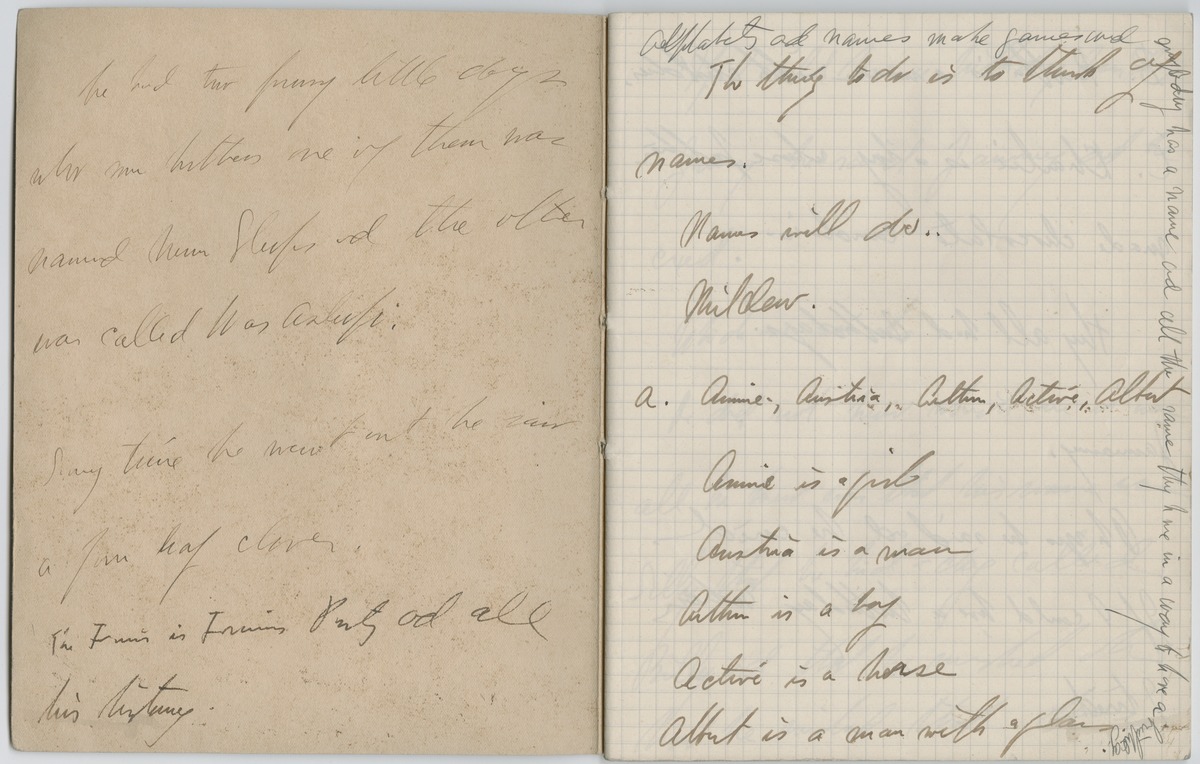 he had two funny little dogs
who were brothers one of them was
named Never Sleeps and the other
was called Was Asleep.
Every time he went out he saw
a four leaf clover.
The is and all
his history.
Alphabets and names make games and everybody has a name and all the same they have in a way to have a birthday.
The thing to do is to think of
names.
Names will do..
Mildew.
A. Annie, Austria, Arthur, Active, Albert
Annie is a girl
Austria is a man
Arthur is a boy
Active is a horse
Albert is a man with a glass.